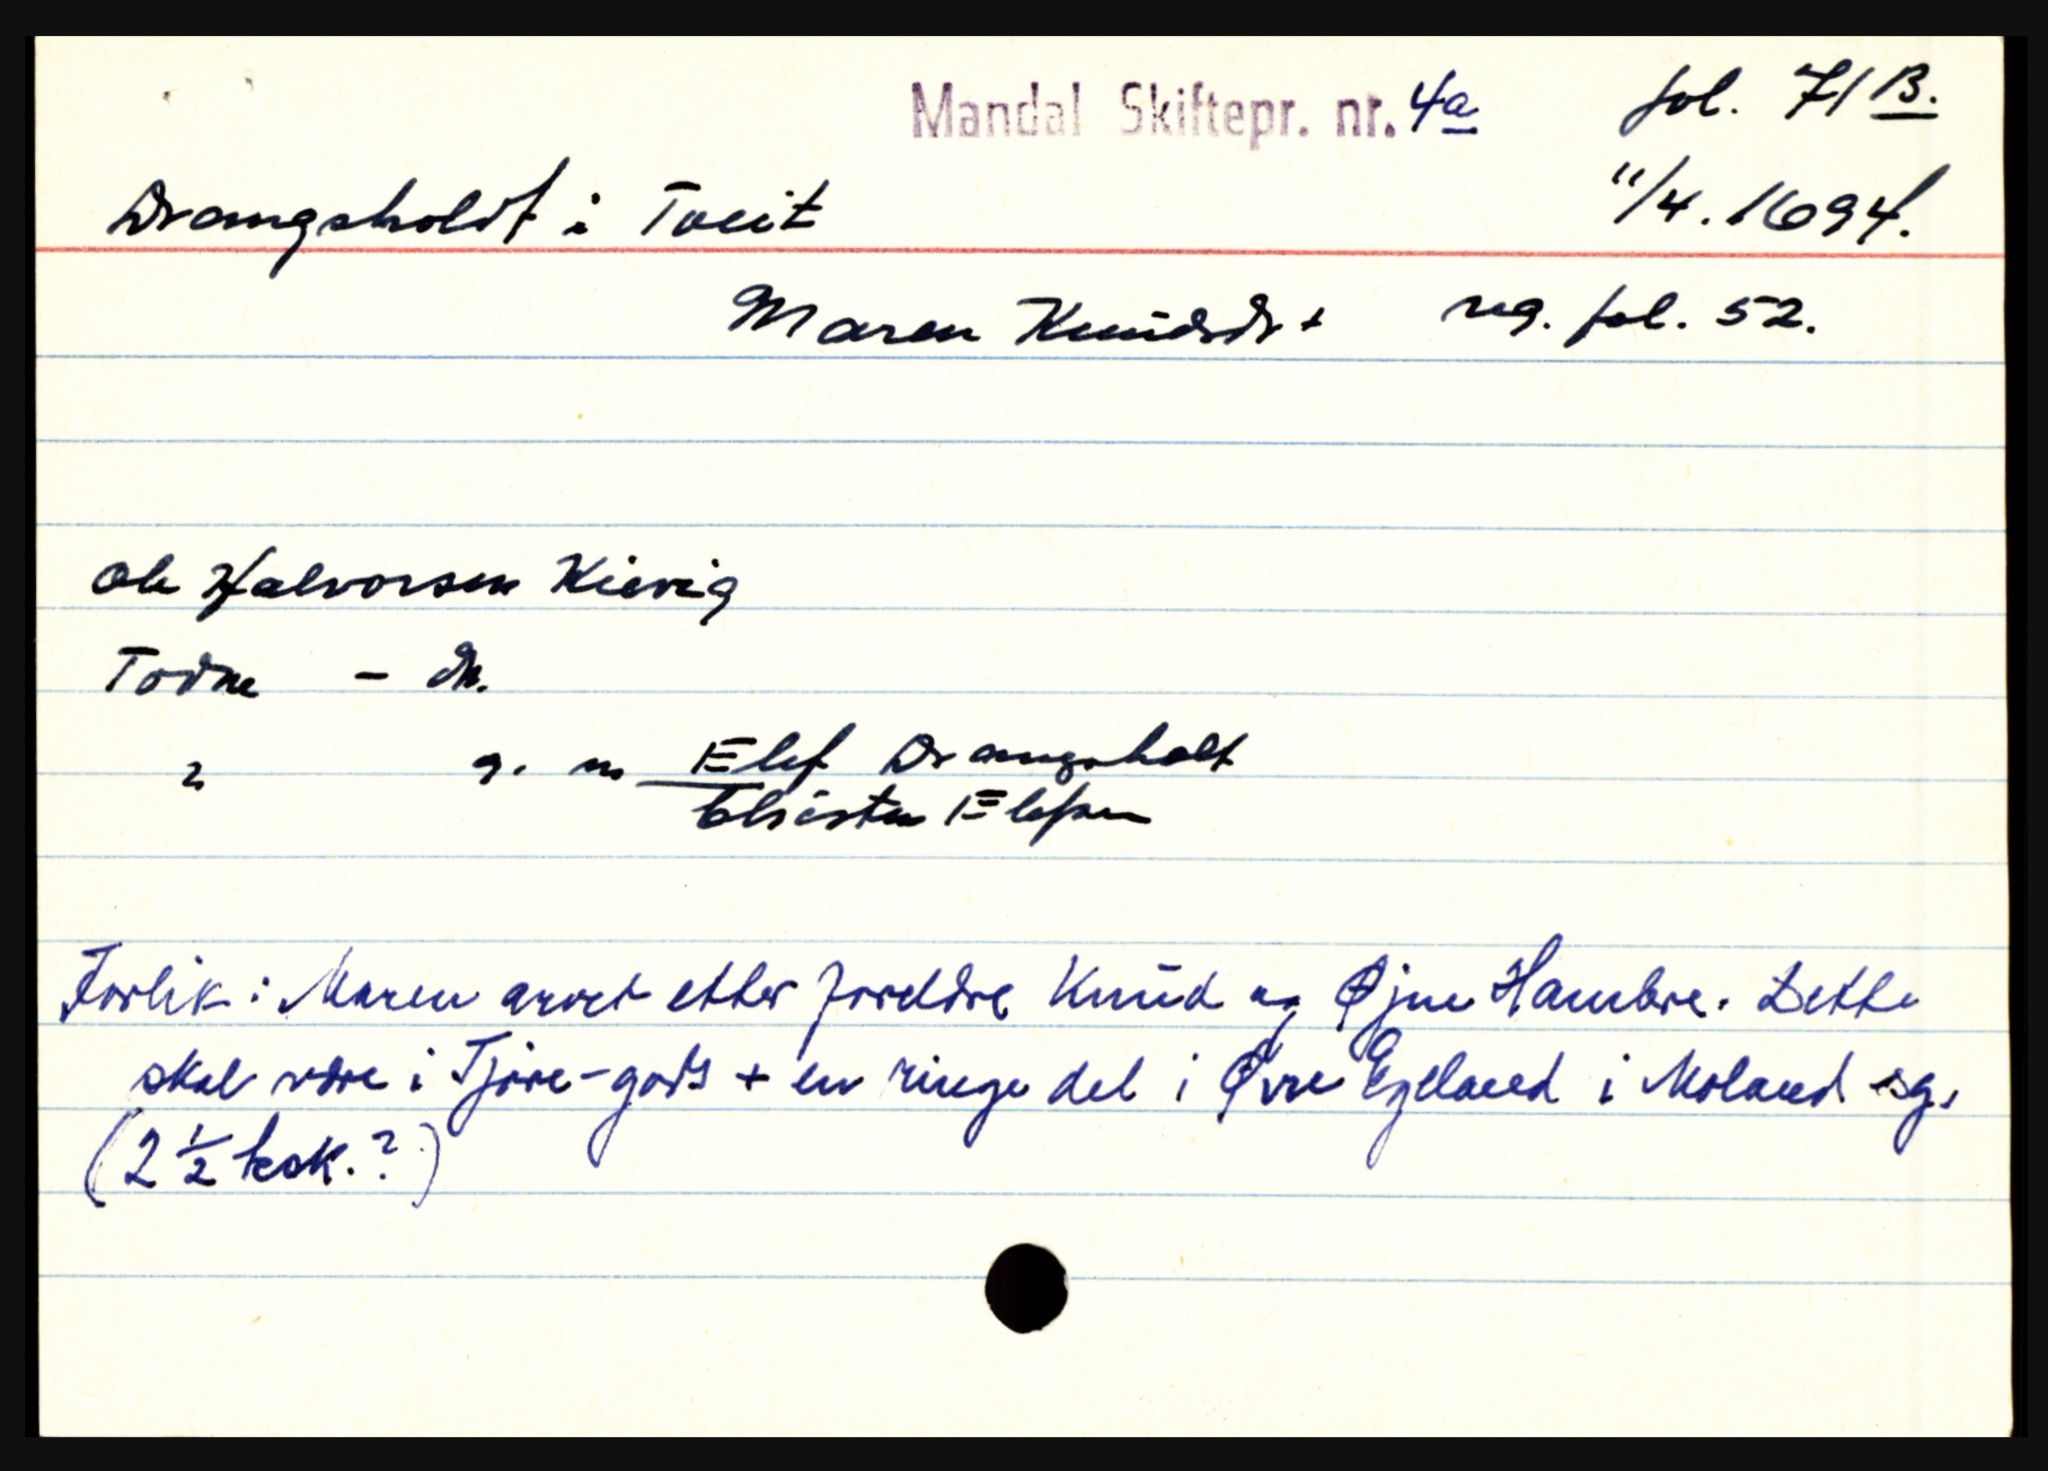 Mandal Skiftepr. nr. 4a fol. 71 B.
Drangsholdt i Tveit 11/4. 1694.
Maren Knudsdr + reg. fol. 52.
Ole Halvorsen Kievig
Todne - dr.
? g. m. Elef Drangsholt
Christen Elefsen
Forlik: Maren arvet etter foreldre Knud og Øjne Hambre. Dette
skal være i Tjøre-gods + en ringe del i Øvre Egeland i Moland sg.
(2 1/2 kok.?)